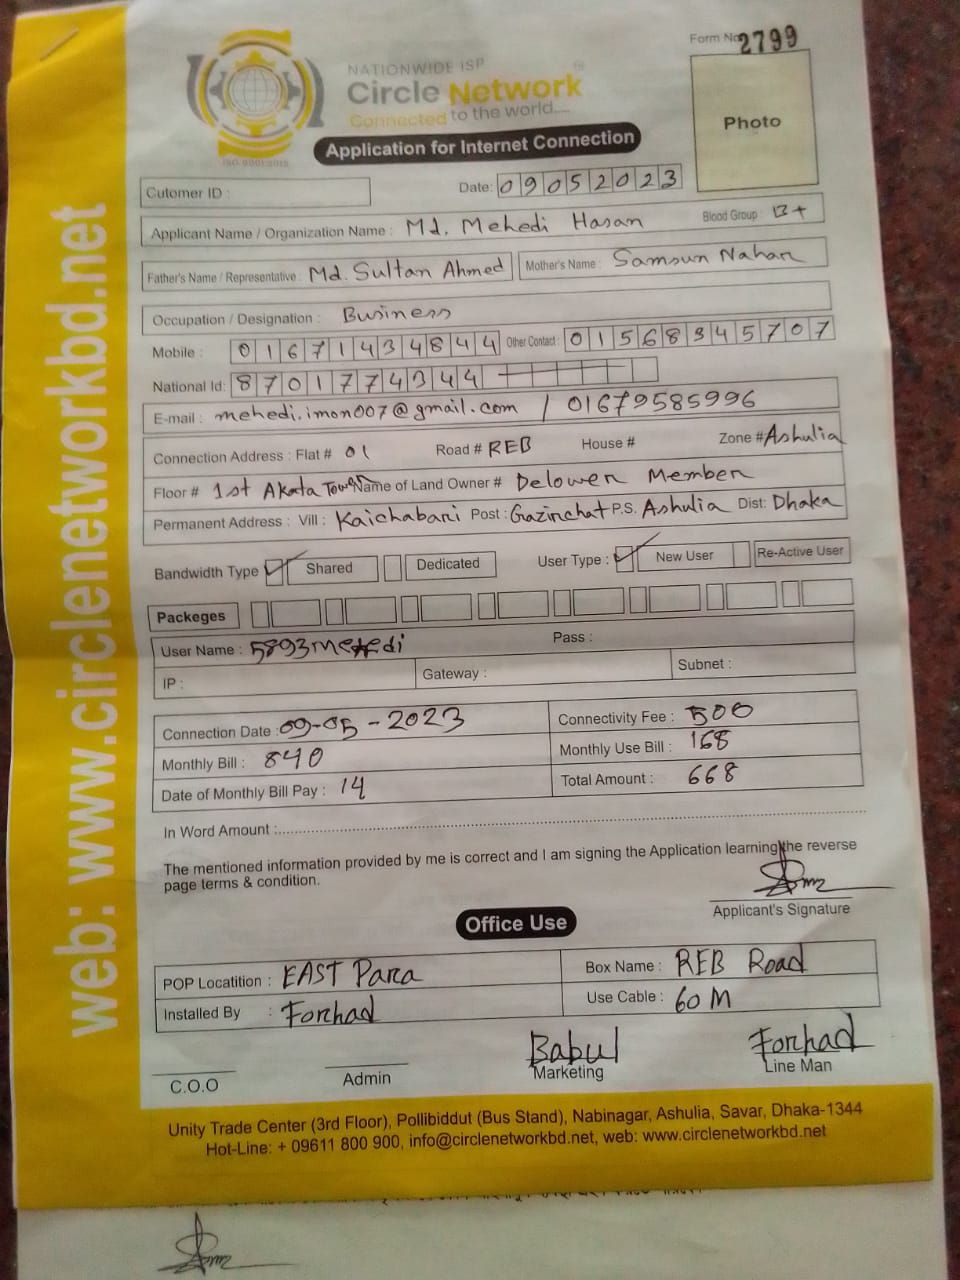 Form No 2799
NATIONWIDE ISP
Circle Network
Connected to the world....
ISO 9001:2015
Photo
Application for Internet Connection
Cutomer ID :
Date: 09052023
Applicant Name / Organization Name : Md. Mehedi Hasan Blood Group : B+
Father's Name / Representative : Md. Sultan Ahmed Mother's Name : Samsun Nahar
Occupation / Designation : Business
Mobile : 01671434844 Other Contact : 01568345707
National Id: 8701774344
E-mail : mehedi.imon007@gmail.com / 01679585996
Connection Address : Flat # 01 Road # REB House # Zone # Ashulia
Floor # 1st Akata Tower Name of Land Owner # Delower Member
Permanent Address : Vill : Kaichabari Post : Gazirchat P.S. Ashulia Dist: Dhaka
Bandwidth Type Shared Dedicated User Type : New User Re-Active User
Packeges
User Name : 5893mehedi Pass :
IP : Gateway : Subnet :
Connection Date : 09-05-2023 Connectivity Fee : 500
Monthly Bill : 840 Monthly Use Bill : 168
Date of Monthly Bill Pay : 14 Total Amount : 668
In Word Amount :
The mentioned information provided by me is correct and I am signing the Application learning the reverse
page terms & condition.
Applicant's Signature
Office Use
POP Locatition : EAST Para Box Name : REB Road
Installed By : Forhad Use Cable : 60 M
Babul Forhad
C.O.O Admin Marketing Line Man
Unity Trade Center (3rd Floor), Pollibiddut (Bus Stand), Nabinagar, Ashulia, Savar, Dhaka-1344
Hot-Line: + 09611 800 900, info@circlenetworkbd.net, web: www.circlenetworkbd.net
web: www.circlenetworkbd.net